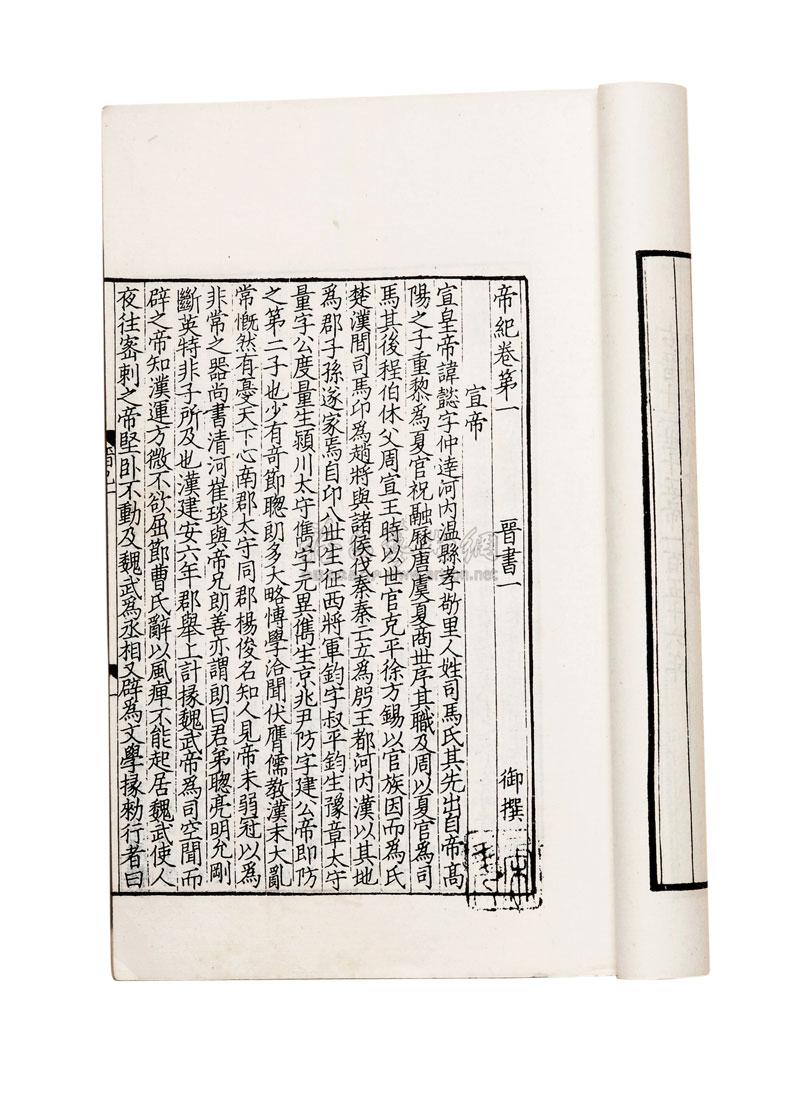 帝紀卷第一 晉書一 御撰
宣帝
宣皇帝諱懿字仲達河内温縣孝敬里人姓司馬氏其先出自帝高
陽之子重黎爲夏官祝融歷唐虞夏商世序其職及周以夏官爲司
馬其後程伯休父周宣王時以世官克平徐方錫以官族因而爲氏
楚漢間司馬卬爲趙將與諸侯伐秦秦亡立爲殷王都河内漢以其地
爲郡子孫遂家焉自卬八世生征西將軍鈞字叔平鈞生豫章太守
量字公度量生潁川太守儁字元異儁生京兆尹防字建公帝即防
之第二子也少有奇節聦朗多大略博學洽聞伏膺儒教漢末大亂
常慨然有憂天下心南郡太守同郡楊俊名知人見帝未弱冠以爲
非常之器尚書清河崔琰與帝兄朗善亦謂朗曰君弟聦亮明允剛
斷英特非子所及也漢建安六年郡舉上計掾魏武帝爲司空聞而
辟之帝知漢運方微不欲屈節曹氏辭以風痺不能起居魏武使人
夜往密刺之帝堅卧不動及魏武爲丞相又辟爲文學掾勑行者曰